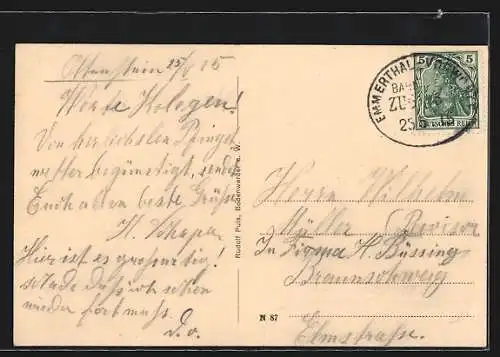 Ottenstein 25/5 15
Werte Kolegen!
Von herrlichsten Pfingst
wetter begünstigt, sendet
Euch allen beste Grüße
H. Schaper
Hier ist es großartig!
schade daß ich schon
wieder fort muß.
D. O.
Rudolf Puls, Bodenwerder a. W.
N 87
EMMERTHAL VORWOHLE
BAHNPOST
ZUG
25
5 5
DEUTSCHES REICH
Herrn Wilhelm
Müller Revisor
In Firma H. Büssing
Braunschweig
Elmstraße.